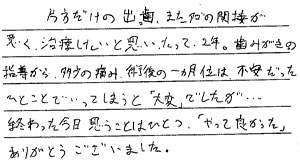 片方だけの出歯、またアゴの関接が
悪く、治療したいと思いたって、2年。歯みがきの
指導から、術後の一カ月位は、不安だった
ひとことでいってしまうと「大変」でしたが…
終わった今日思うことはひとつ、「やって良かった」
ありがとうございました。